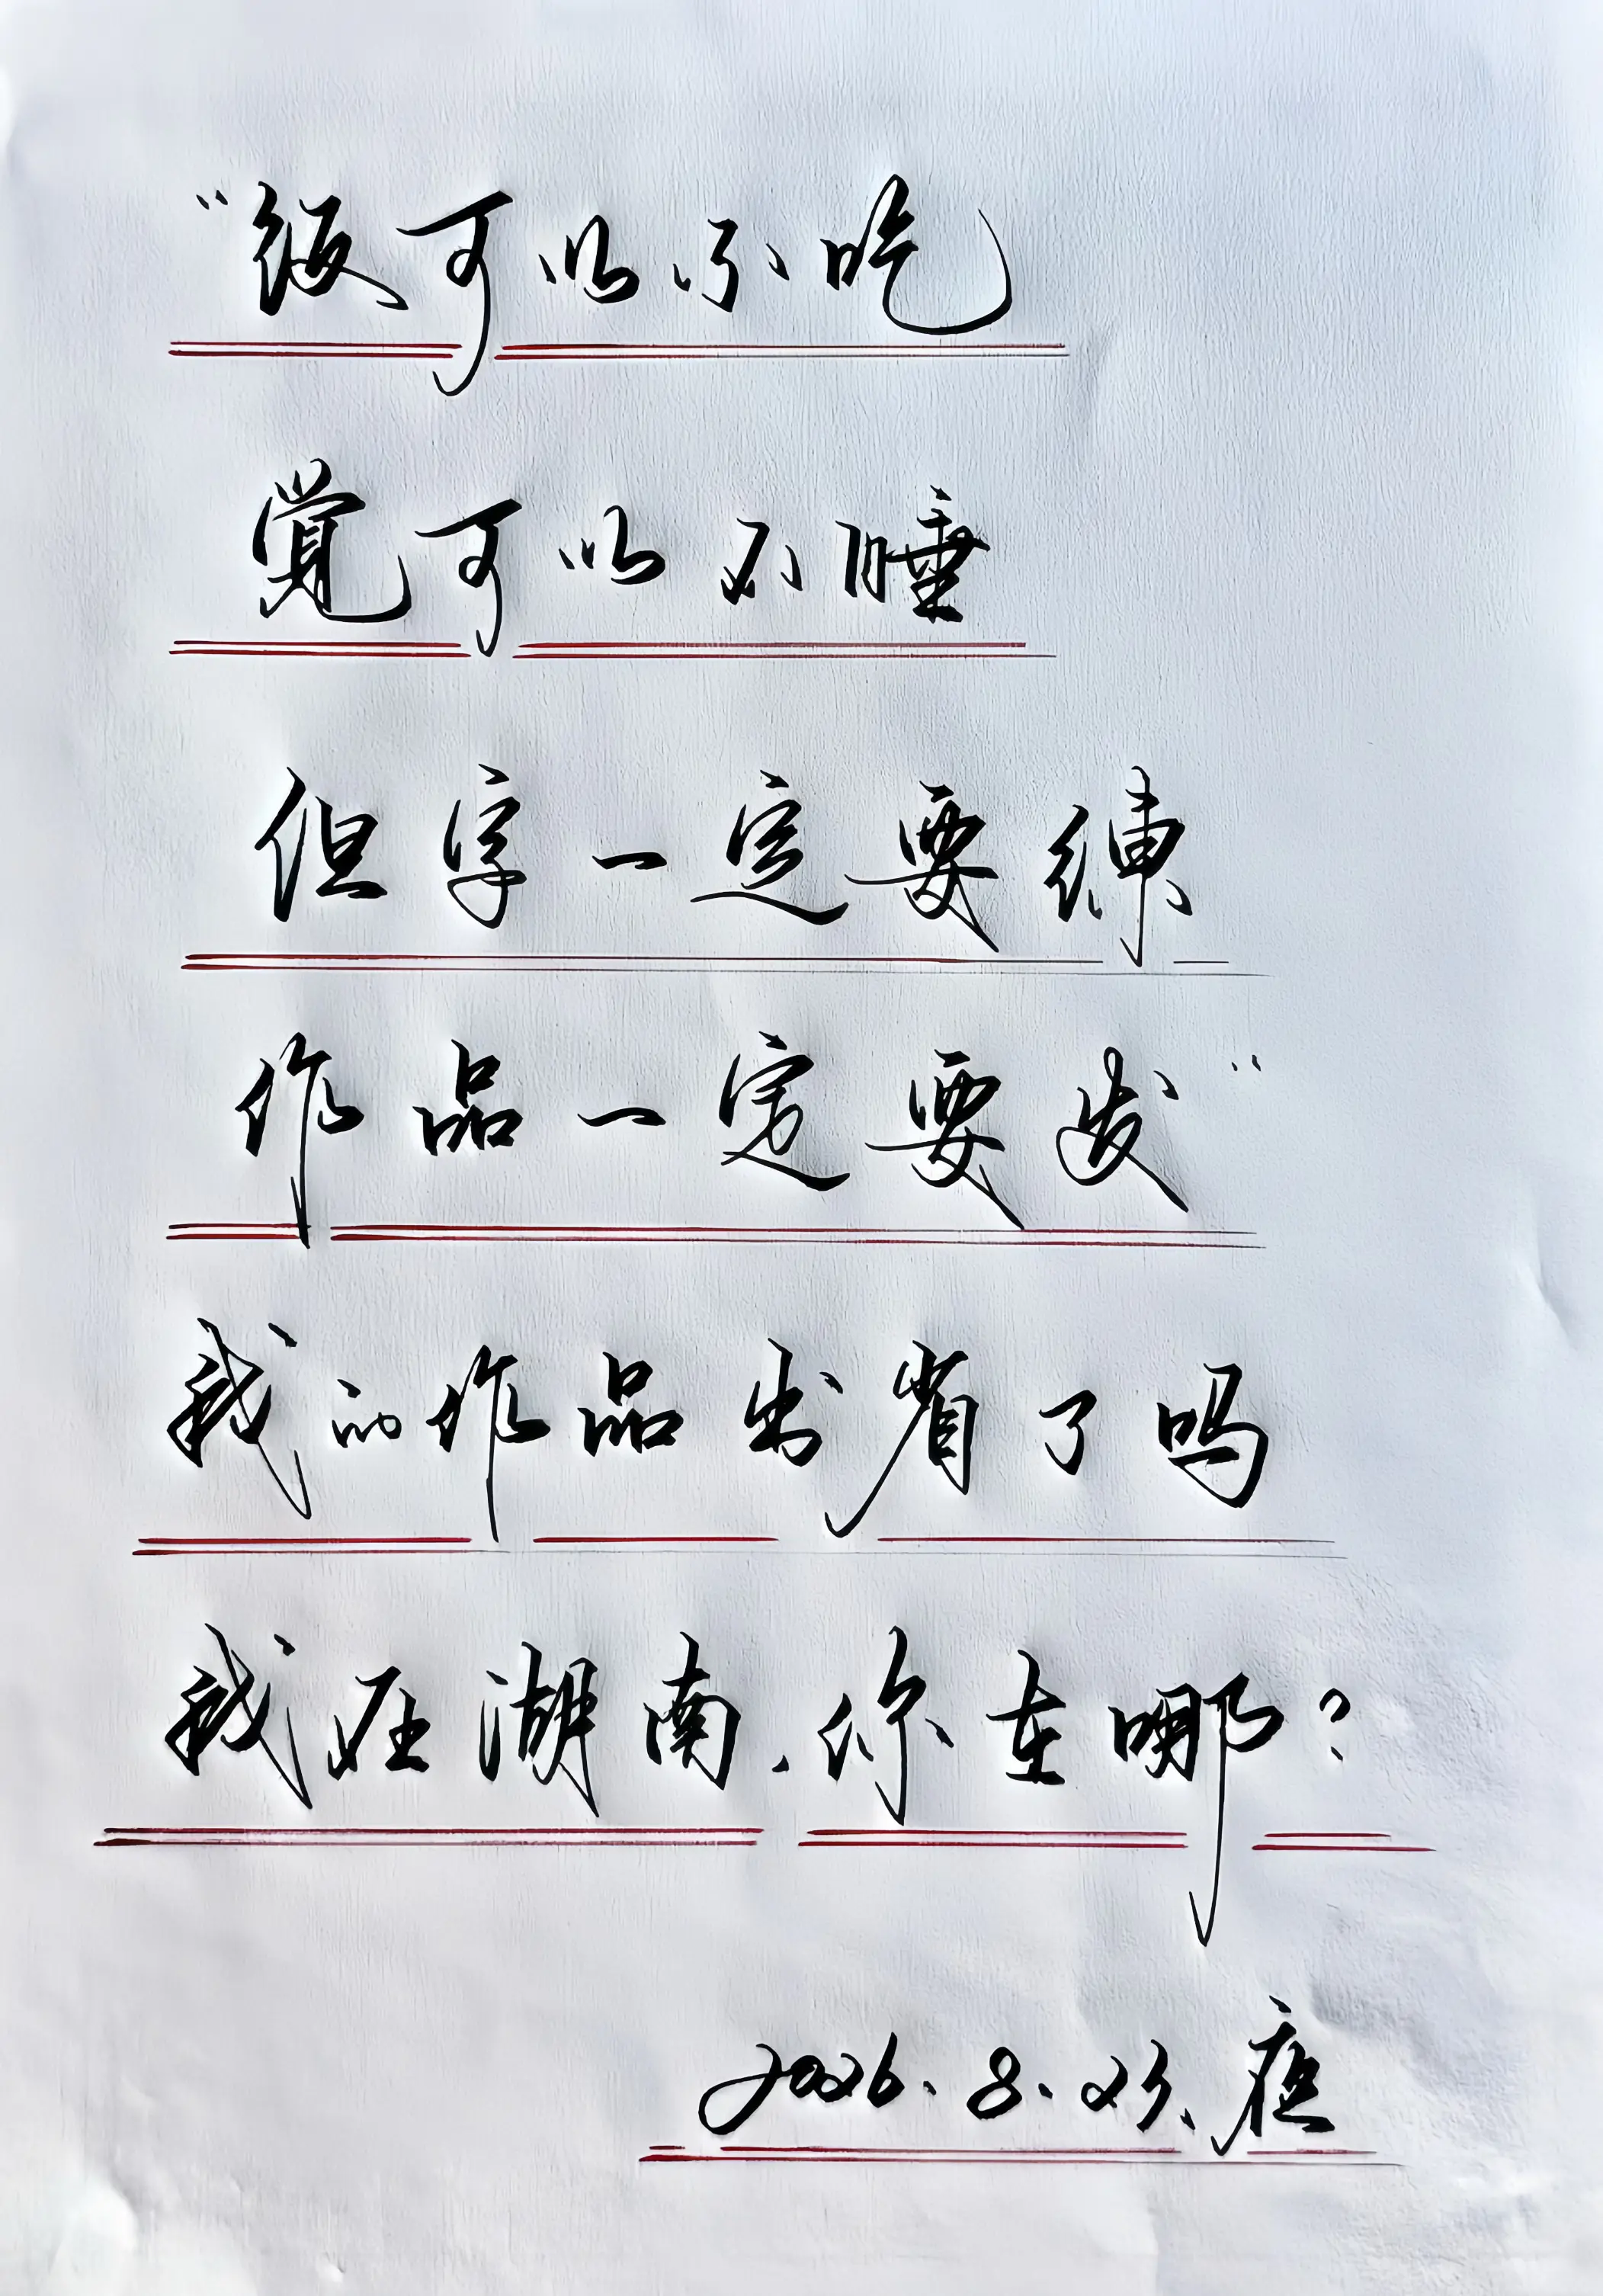 “饭可以不吃
觉可以不睡
但字一定要练
作品一定要发”
我的作品出省了吗
我在湖南.你在哪?
2026.8.